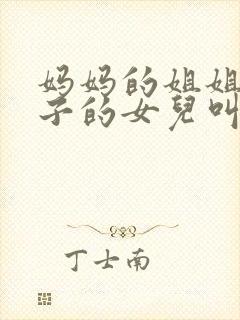 妈妈的姐姐
子的女兒叫
丁士南